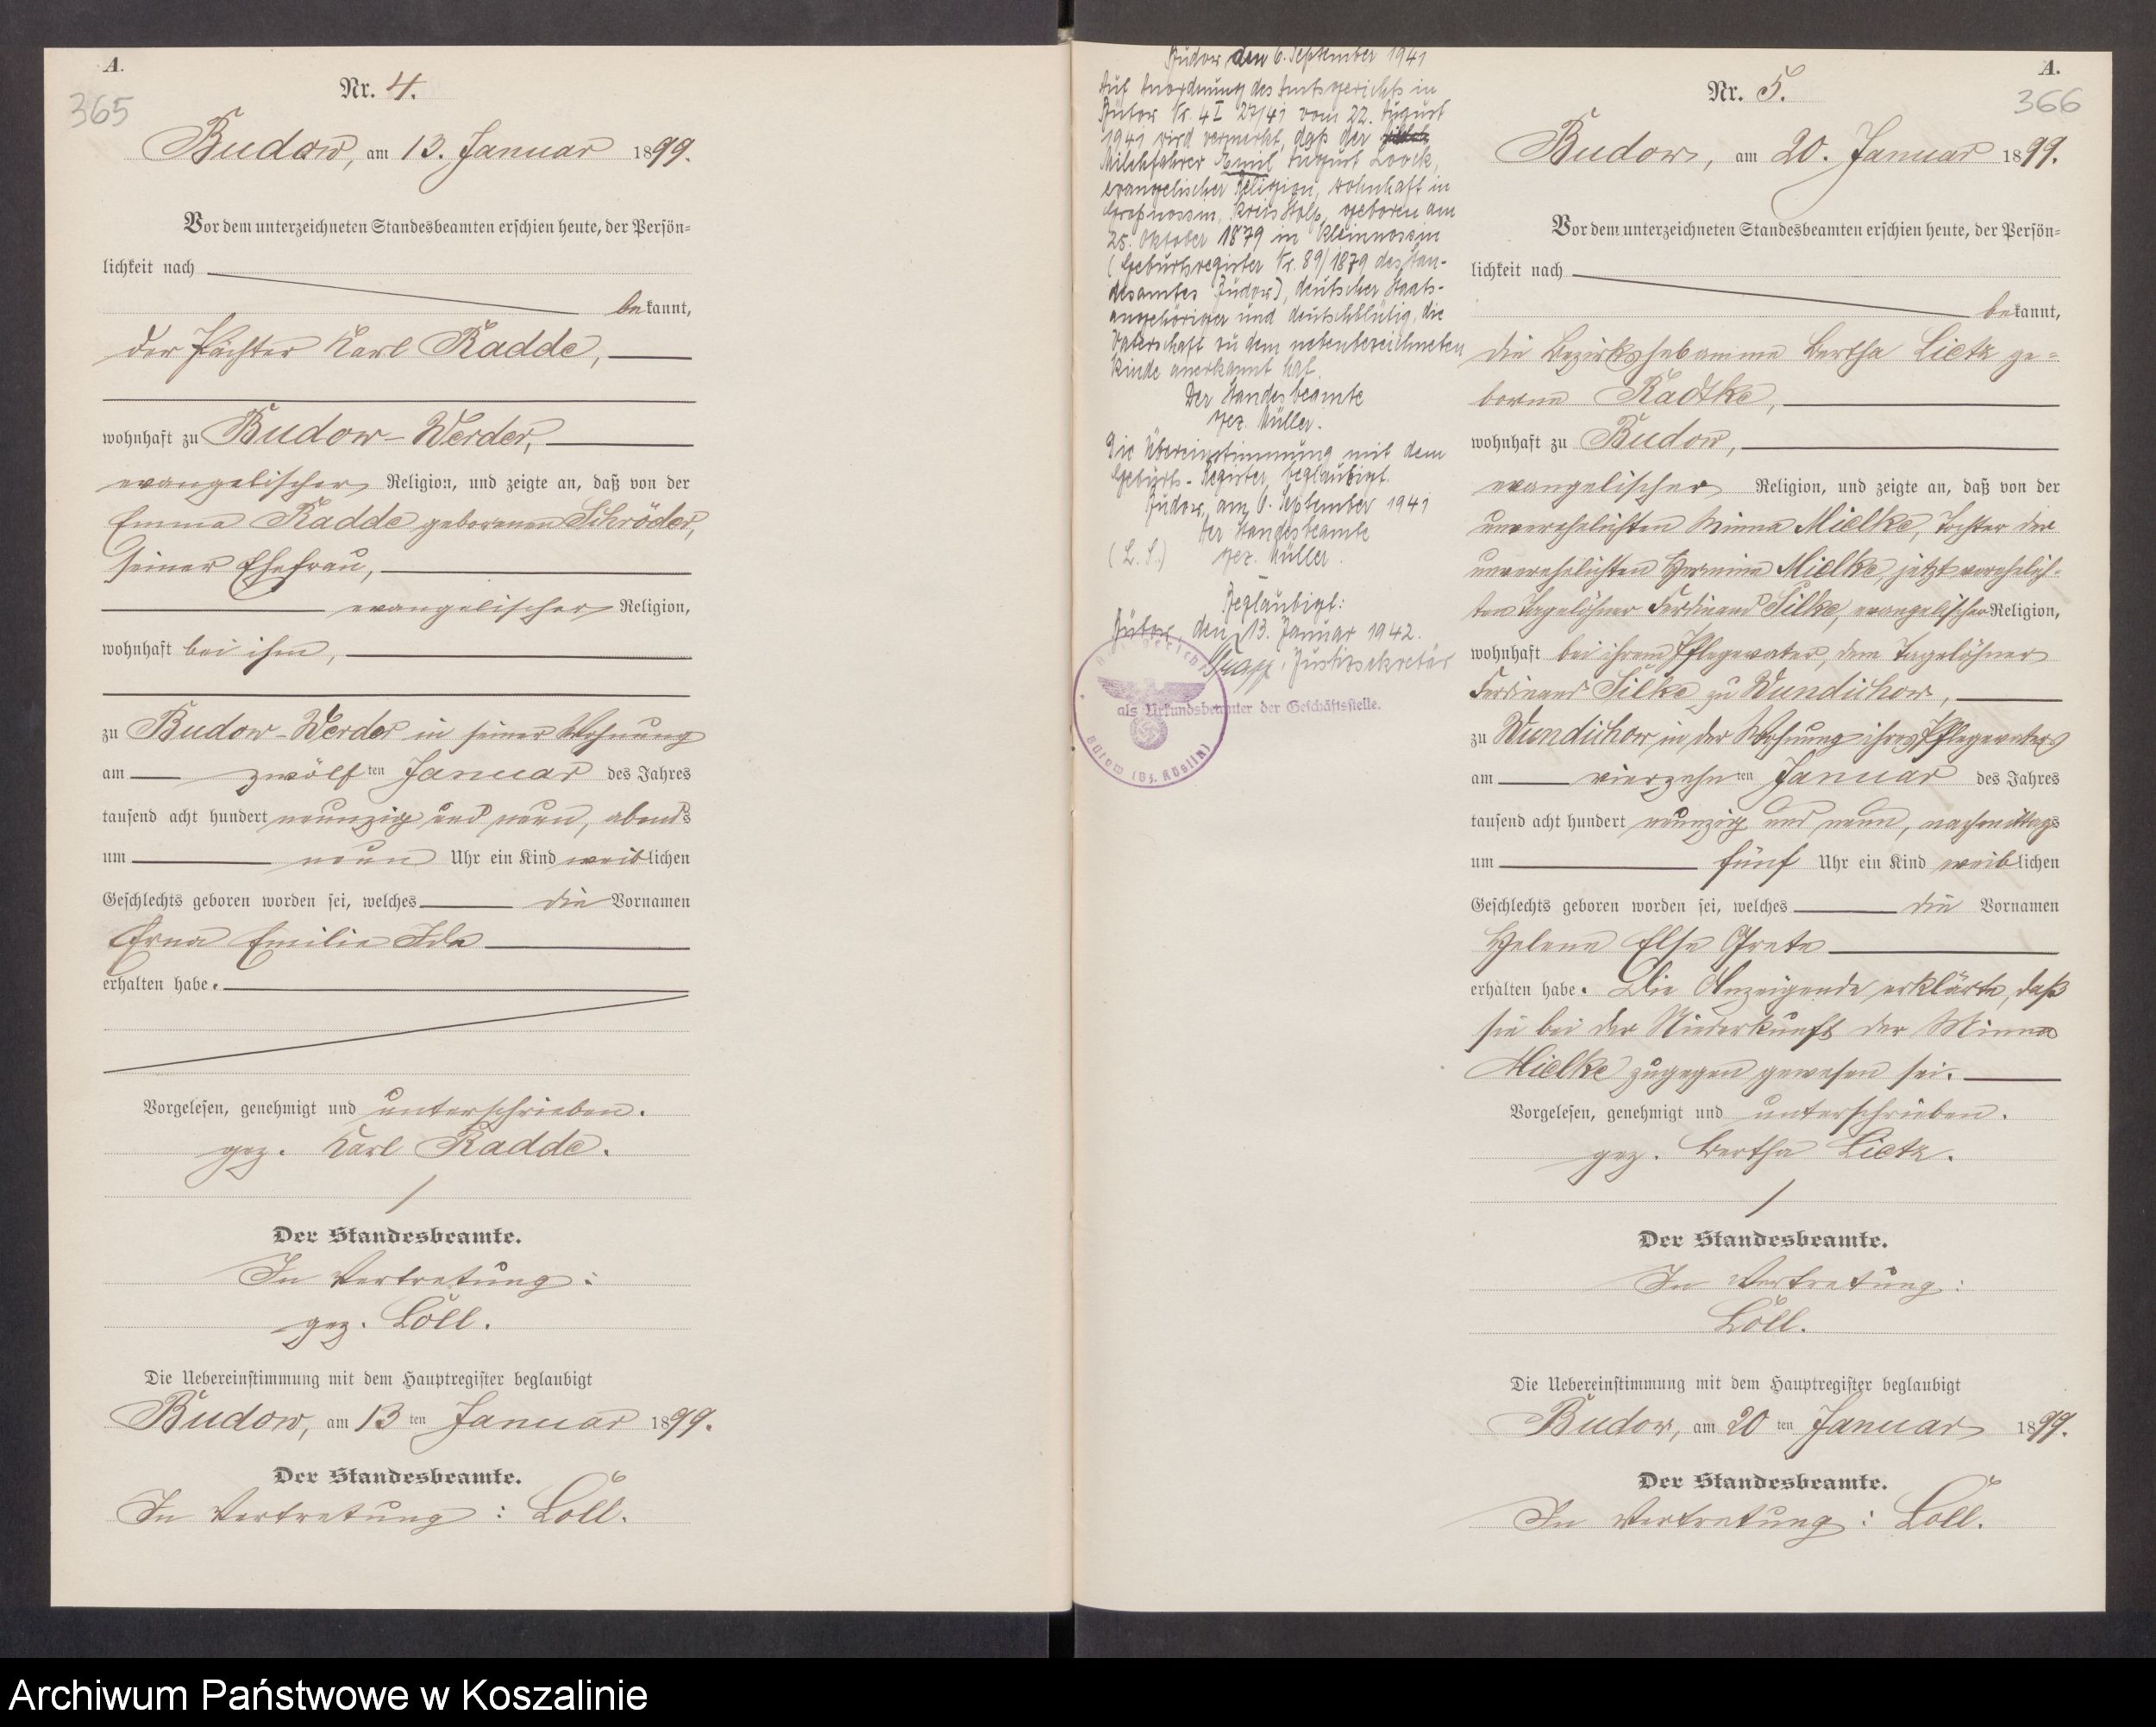 A.
365
Nr. 4.
Budow, am 13. Januar 1899.
Vor dem unterzeichneten Standesbeamten erschien heute, der Persön-
lichkeit nach
bekannt,
der Pächter Karl Radde,
wohnhaft zu Budow-Werder,
evangelischer Religion, und zeigte an, daß von der
Emma Radde geborenen Schröder,
seiner Ehefrau,
evangelischer Religion,
wohnhaft bei ihm,
zu Budow-Werder in seiner Wohnung
am zwölften Januar des Jahres
tausend acht hundert neunzig und neun, abends
um neun Uhr ein Kind weiblichen
Geschlechts geboren worden sei, welches die Vornamen
Erna Emilie Ida
erhalten habe.
Vorgelesen, genehmigt und unterschrieben.
gez. Karl Radde.
Der Standesbeamte.
In Vertretung:
gez. Löll.
Die Uebereinstimmung mit dem Hauptregister beglaubigt
Budow, am 13ten Januar 1899.
Der Standesbeamte.
In Vertretung: Löll.
Budow den 6. September 1941
Auf Anordnung des Amtsgerichts in
Bütow Nr. 4 I 27/41 vom 22. August
1941 wird vermerkt, daß der
Milchfahrer Emil August Loock,
evangelischer Religion, wohnhaft in
Großnossin, Kreis Stolp, geboren am
25. Oktober 1879 in Kleinnossin
(Geburtsregister Nr. 89/1879 des Stan-
desamtes Budow), deutscher Staats-
angehöriger und deutschblütig, die
Vaterschaft zu dem nebenbezeichneten
Kinde anerkannt hat.
Der Standesbeamte
gez. Müller.
Die Übereinstimmung mit dem
Geburts-Register beglaubigt.
Budow, am 6. September 1941
Der Standesbeamte
(L.S.) gez. Müller.
Beglaubigt:
Bütow, den 13. Januar 1942.
Justizsekretär
als Urkundsbeamter der Geschäftsstelle.
Amtsgericht
Bütow (Bz. Köslin)
A.
366
Nr. 5.
Budow, am 20. Januar 1899.
Vor dem unterzeichneten Standesbeamten erschien heute, der Persön-
lichkeit nach
bekannt,
die Bezirkshebamme Bertha Lietz ge-
borne Radtke,
wohnhaft zu Budow,
evangelischer Religion, und zeigte an, daß von der
unverehelichten Minna Mielke, Tochter der
unverehelichten Hermine Mielke, jetzt verehelich-
ten Tagelöhner Ferdinand Silke, evangelischer Religion,
wohnhaft bei ihrem Pflegevater, dem Tagelöhner
Ferdinand Silke zu Wundichow,
zu Wundichow in der Wohnung ihres Pflegevaters
am vierzehnten Januar des Jahres
tausend acht hundert neunzig und neun, nachmittags
um fünf Uhr ein Kind weiblichen
Geschlechts geboren worden sei, welches die Vornamen
Helene Else Grete
erhalten habe. Die Anzeigende erklärte, daß
sie bei der Niederkunft der Minna
Mielke zugegen gewesen sei.
Vorgelesen, genehmigt und unterschrieben.
gez. Bertha Lietz.
Der Standesbeamte.
In Vertretung:
Löll.
Die Uebereinstimmung mit dem Hauptregister beglaubigt
Budow, am 20ten Januar 1899.
Der Standesbeamte.
In Vertretung: Löll.
Archiwum Państwowe w Koszalinie